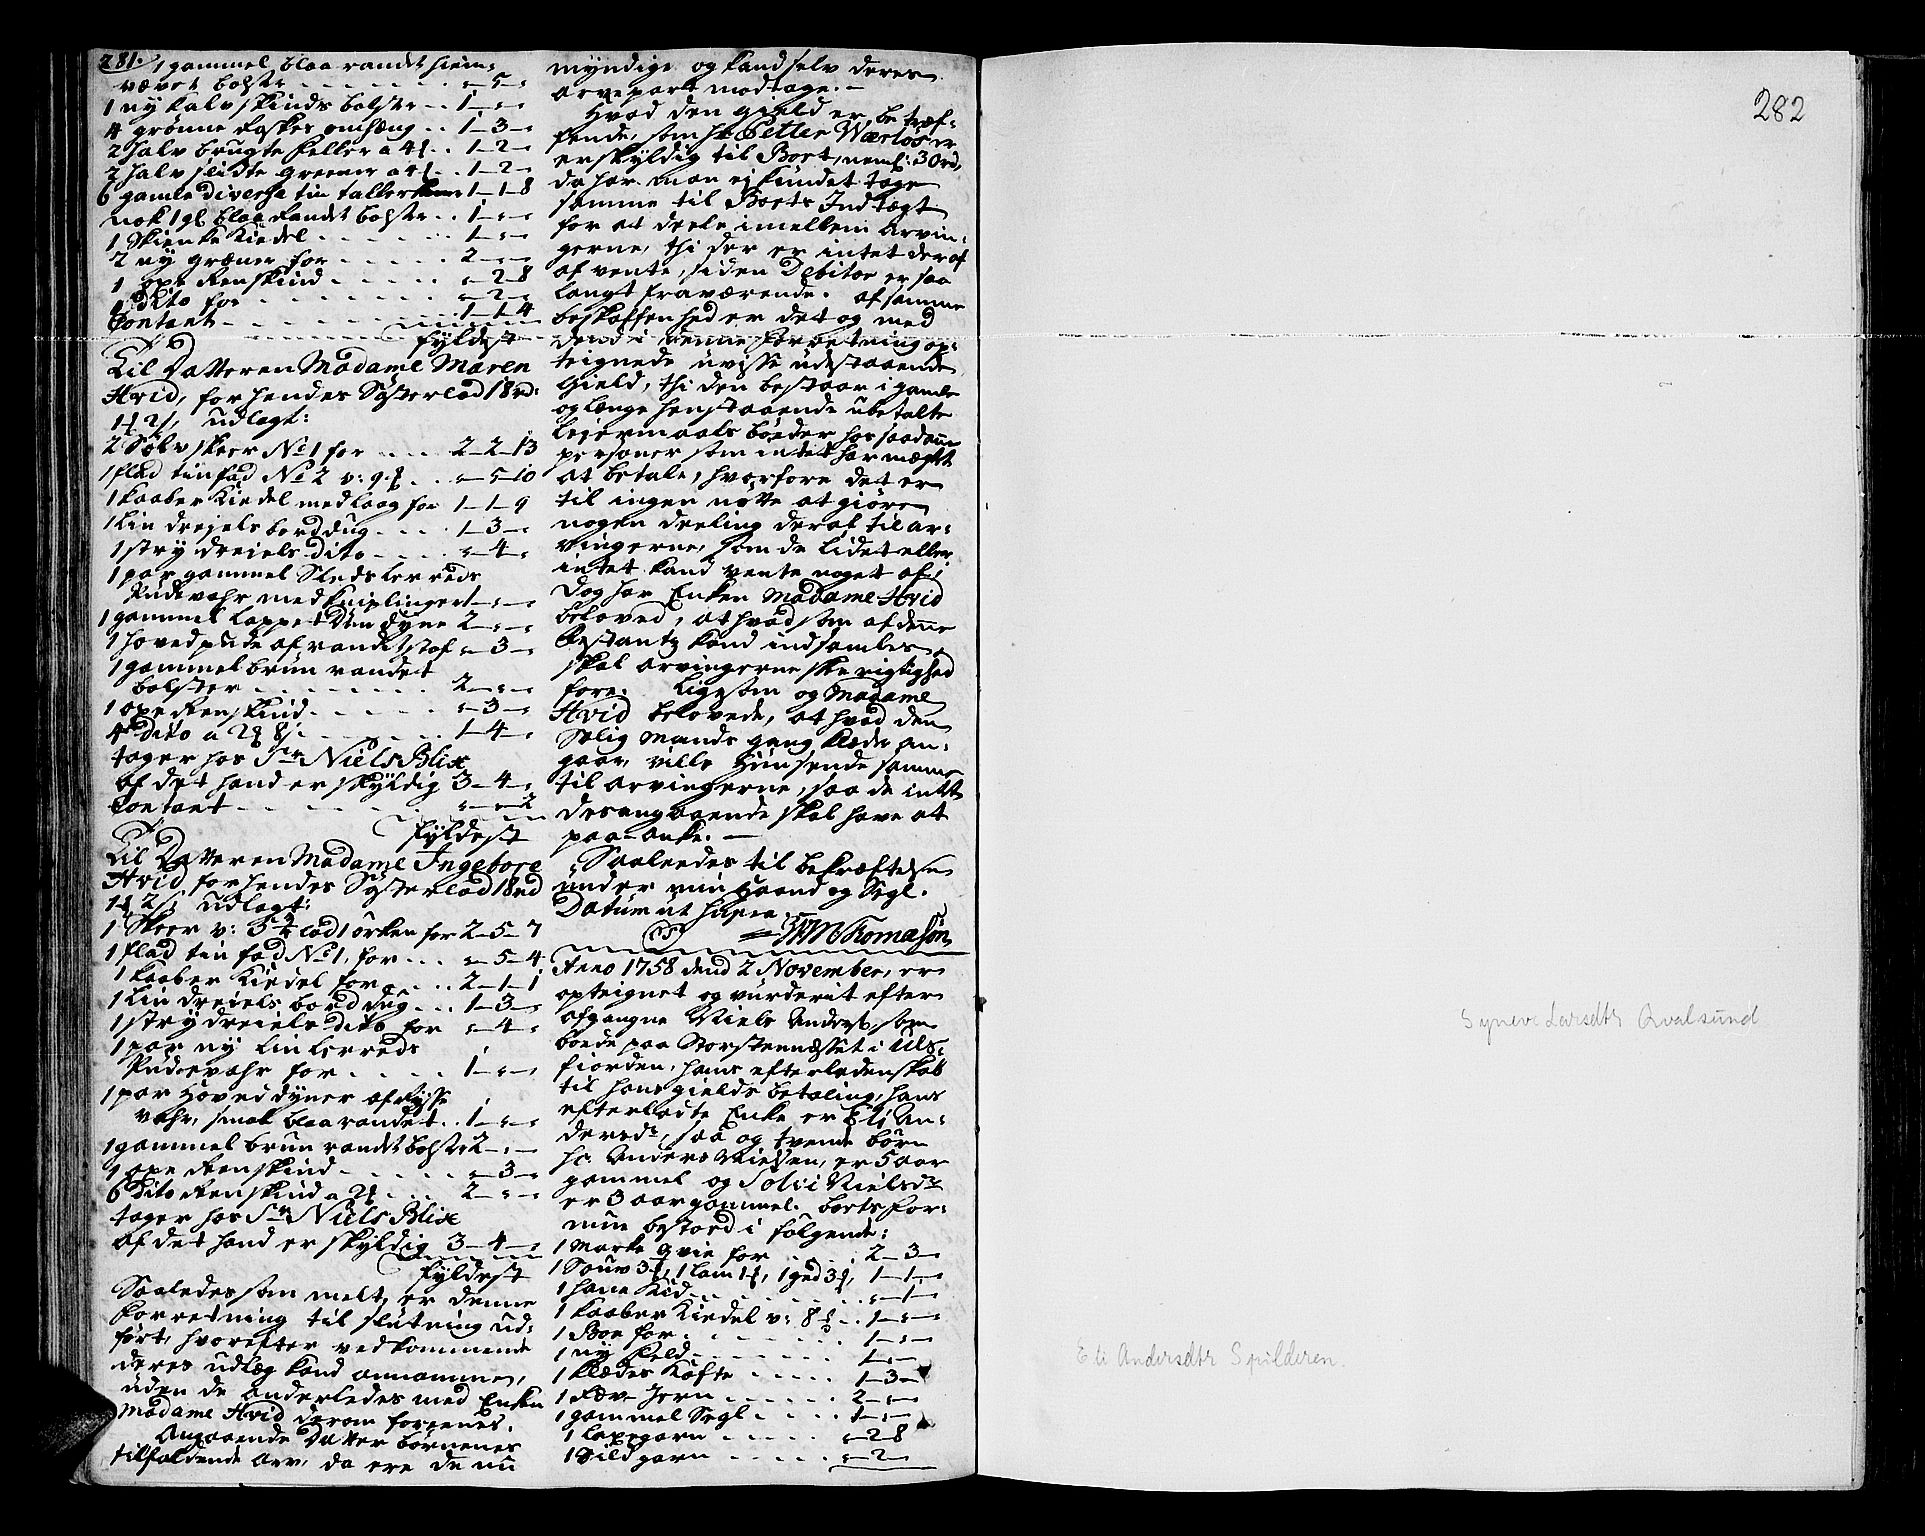 281. 1 gammel blaa randet hiem-
vævet bolster . . . . „-5-„
1 ny kalv skinds bolster . . 1-„-„
4 grønne Raskes omhæng . . 1-3-„
2 halv brugte feller a 4 ß . . 1-2-„
2 halv slidte greener a 4 ß . . 1-2-„
6 gamle diverse tin tallerkener 1-1-8
nok 1 gl. blaa Randet bolster . . 1-„-„
1 Skienke Kiedel . . . . 1-„-„
2 ny græner for . . . . 2-„-„
1 ope Renskind . . . . „-2-8
1 dito for . . . . „-2-„
Contant . . . . 1-1-4
fyldest
Til Datteren Madame Maren
Hvid, for hendes Søsterlod 18 rd:
1 ß 2 s, udlagt:
2 Sølv skeer No 1 for . . . . 2-2-13
1 flad tinfad No 2 v: 9 ß . . . „-5-10
1 kaaber Kiedel med laag for 1-1-9
1 Lin dreiels bord dug . . . 1-3-„
1 stry dreiels dito . . . . „-4-„
1 par gammel Slesk lerreds
Pudevahr med kniplinger 1-„-„
1 gammel lappet Duun dyne 2-„-„
1 hovedpude af randet stof „-3-„
1 gammel brun randet
bolster . . . . . 2-„-„
1 ope Renskind . . . . „-3-„
4 dito a 2 ß 8 s . . . . 1-4-„
tager hos Sr. Niels Blix
af det hand er skyldig 3-4-„
Contant . . . . „-„-2
fyldest
Til Datteren Madame Ingebore
Hvid, for hendes Søsterlod 18 rd
1 ß 2 s, udlagt:
1 Skeer v: 3 ½ lod 1 orken for 2-5-7
1 flad tin fad No 1, for . . . „-5-4
1 kaaber Kiedel for . . . . 2-1-1
1 Lin dreiels bord dug . . . 1-3-„
1 stry dreiels dito for „-4-„
1 par ny lin lerreds
Pudevahr for . . . . 1-„-„
1 par Hoved dyner af Rysse
vahr, smal blaa randet . . 1-„-„
1 gammel brun randet bolster 2-„-„
1 ope Renskind . . . . „-3-„
6 dito Renskind a 2 ß . . . 2-„-„
tager hos Sr. Niels Blix
af det hand er skyldig 3-4-„
fyldest
Saaledes som melt, er denne
forretning til slutning ud-
ført, hvorefter vedkommende
deres udlæg kand annamme,
uden de anderledes med Enken
Madame Hvid derom foreenes.
Angaaende Datter børnenes
tilfaldende arv, da ere de nu
myndige og kand selv deres
arvepart modtage. -
Hvad den gield er betræf-
fende, som hr Petter Wærløs er
er skyldig til Boet, neml: 30 rd,
da har man ej kundet tage
samme til Boets Indtægt
for at deele imellem arvin-
gerne, thi der er intet deraf
at vente, siden Debitor er saa
langt fraværende. af samme
beskaffenhed er det og med
dend i denne forretning op-
teignede uvisse udestaaende
Gield, thi den bestaar i gamle
og længe henstaaende ubetalte
leiermaals bøeder hos saadanne
personer som intet har mægtet
at betale, hvorfore det er
til ingen nøtte at giøre
nogen deeling deraf til ar-
vingerne, som de lidet eller
intet kand vente noget af;
dog har Enken Madame Hvid
beloved, at hvad som af denne
Restantz kand indsambles,
skal arvingerne ske rigtighed
fore. Ligesom og Madame
Hvid belovede, at hvad den
Salig Mands gang klæder an-
gaar, ville Hun sende samme
til arvingerne, saa de intet
desangaaende skal have at
paa-anke. -
Saaleedes til bekræftelse
under min Haand og Segl.
Datum ut supra.
WM Thomasøn
Anno 1758 dend 2 November, er
opteignet og vurderit efter
afgangne Niels Anders: som
boede paa Storstennæsset i Uls-
fiorden, hans efterladenskab
til hans gields betaling, hans
efterladte Enke er Eli An-
dersdr, saa og tvende børn
hr Anders Nielsen, er 5 aar
gammel og Solvi Nielsdr
er 3 aar gammel. boets for-
mue bestoed i følgende:
1 Marke qvie for . . . . 2-3-„
1 Souv 3 ß, 1 lam 1 ß, 1 ged 3 ß, 1-1-„
1 hane Kid . . . . „-1-„
1 kaaber Kiedel v: 8 ß . . 1-„-„
1 Boe for . . . . 1-„-„
1 ny feld . . . . 1-„-„
1 klædes Kofte . . . . 1-3-„
1 Ræv Jern . . . . 2-„-„
1 gammel Segl . . . . 1-„-„
1 laxegarn . . . . „-2-8
1 Sildgarn . . . . „-2-„
282
Syneve Larsdtr Qvalsund
Eli Andersdtr Spilderen.